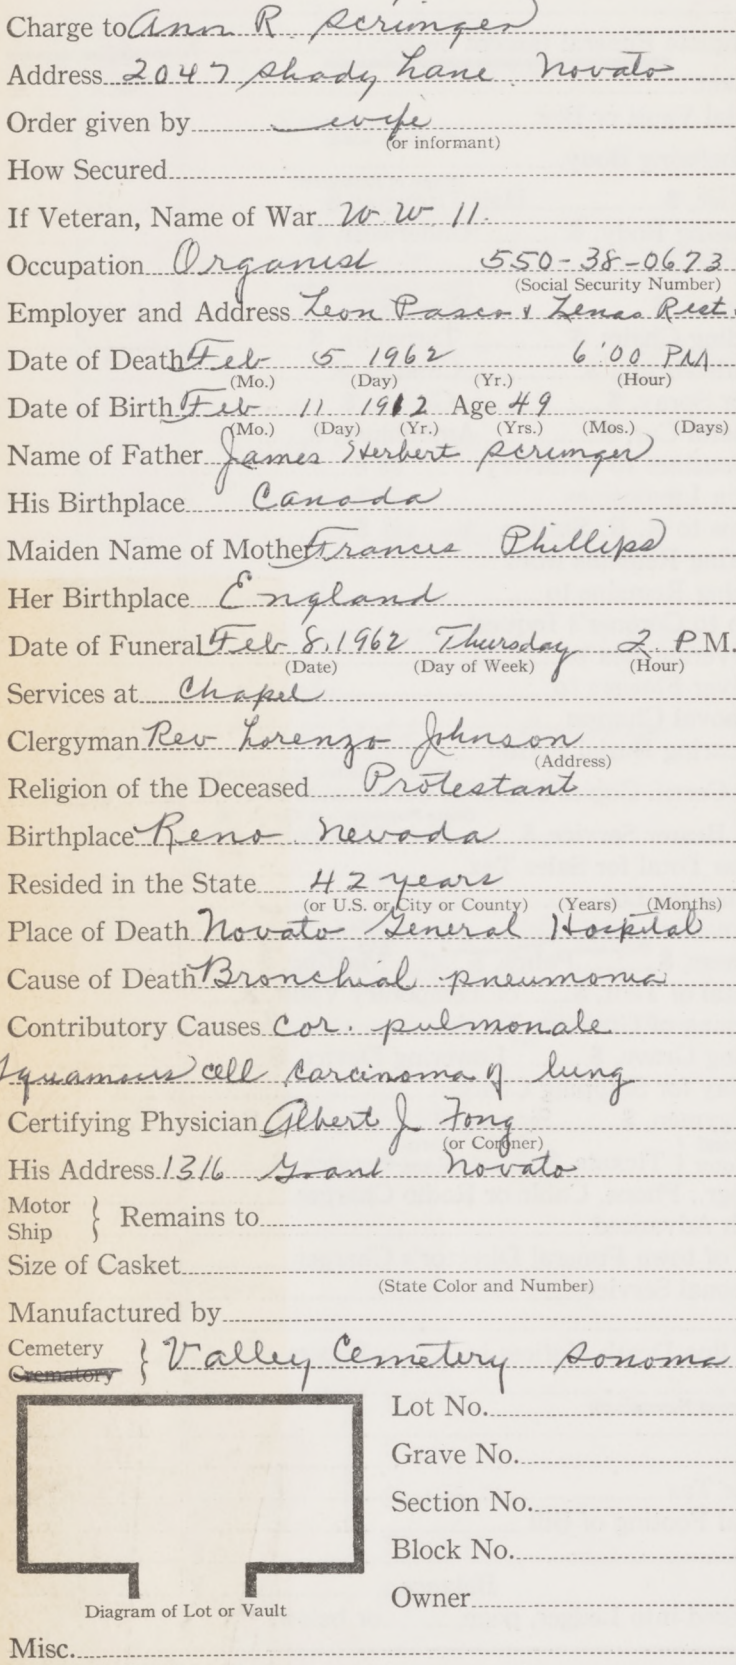 Charge to Ann R. Scrimger
Address 2047 Shady Lane. Novato
Order given by wife
(or informant)
How Secured
If Veteran, Name of War W W. 11.
Occupation Organist 550-38-0673
(Social Security Number)
Employer and Address Leon Pasco & Zenas Rest.
Date of Death Feb 5 1962 6:00 PM
(Mo.) (Day) (Yr.) (Hour)
Date of Birth Feb 11 1912 Age 49
(Mo.) (Day) (Yr.) (Yrs.) (Mos.) (Days)
Name of Father James Herbert Scrimger
His Birthplace Canada
Maiden Name of Mother Frances Phillips
Her Birthplace England
Date of Funeral Feb 8, 1962 Thursday 2 P M.
(Date) (Day of Week) (Hour)
Services at Chapel
Clergyman Rev Lorenzo Johnson
(Address)
Religion of the Deceased Protestant
Birthplace Reno Nevada
Resided in the State 42 years
(or U.S. or City or County) (Years) (Months)
Place of Death Novato General Hospital
Cause of Death Bronchial pneumonia
Contributory Causes Cor. pulmonale
Squamous cell carcinoma of lung
Certifying Physician Albert J Fong
(or Coroner)
His Address 1316 Grant Novato
Motor
Ship } Remains to
Size of Casket
(State Color and Number)
Manufactured by
Cemetery
Crematory } Valley Cemetery Sonoma
Lot No.
Grave No.
Section No.
Block No.
Owner
Diagram of Lot or Vault
Misc.